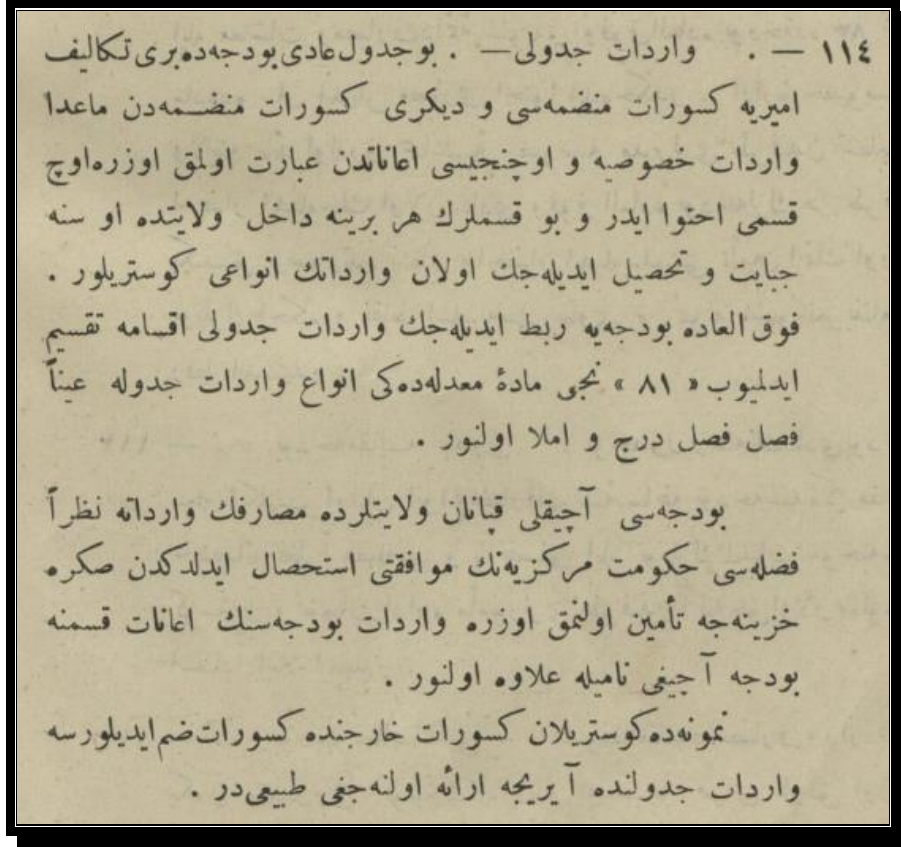 ١١٤ — . واردات جدولی — . بوجدول عادی بودجه‌ده‌بری تکالیف
امیریه کسورات منضمه‌سی و دیکری کسورات منضـمه‌دن ماعدا
واردات خصوصیه و اوچنجیسی اعاناتدن عبارت اولمق اوزره‌اوچ
قسمی احتوا ایدر و بو قسملرك هر برینه داخل ولایتده او سنه
جبایت و تحصیل ایدیله‌جك اولان وارداتك انواعی کوستریلور .
فوق العاده بودجه‌یه ربط ایدیله‌جك واردات جدولی اقسامه تقسیم
ایدلمیوب « ٨١ » نجی مادهٔ معدله‌ده‌کی انواع واردات جدوله عیناً
فصل فصل درج و املا اولنور .
بودجه‌سی آچیقلی قپانان ولایتلرده مصارفك وارداته نظراً
فضله‌سی حکومت مرکزیه‌نك موافقتی استحصال ایدلدکدن صکره
خزینه‌جه تأمین اولنمق اوزره واردات بودجه‌سنك اعانات قسمنه
بودجه آچیغی نامیله علاوه اولنور .
نمونه‌ده کوستریلان کسورات خارجنده کسورات ضم ایدیلورسه
واردات جدولنده آیریجه ارائه اولنه‌جغی طبیعی‌در .